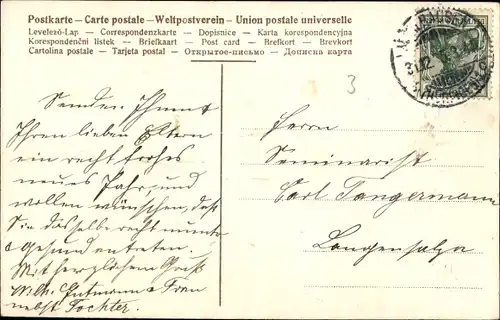 Postkarte – Carte postale – Weltpostverein – Union postale universelle
Levelező-Lap — Correspondenzkarte — Dopisnice — Karta korespondencyjna
Korespondenční lístek — Briefkaart — Post card — Brefkort — Brevkort
Cartolina postale — Tarjeta postal — Открытое-письмо — Дописна карта
3
Senden Ihnen &
Ihren lieben Eltern
ein recht frohes
neues Jahr, und
wollen wünschen, daß
Sie dasselbe recht munter
& gesund antreten.
Mit herzlichem Gruß
Wilh. Gutmann & Frau
nebst Tochter.
Herrn
Seminarist
Carl Tangermann
Langensalza